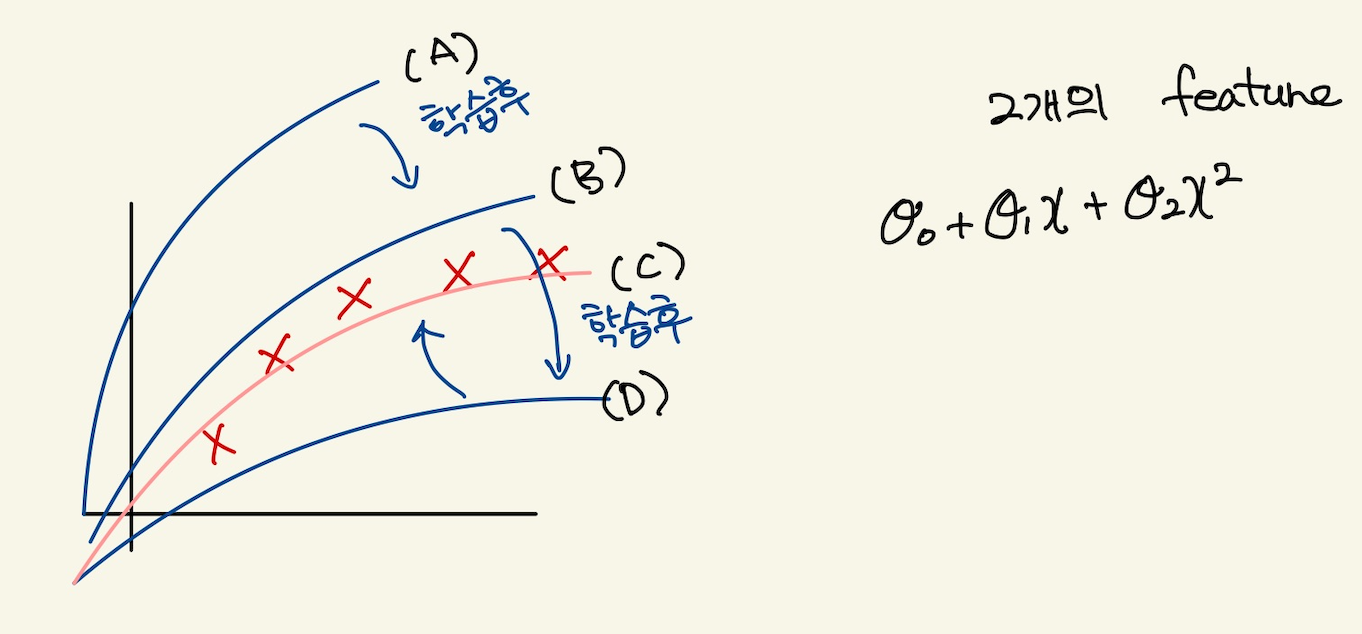 (A)
학습후
(B)
(C)
학습후
(D)
2개의 feature
θ₀ + θ₁x + θ₂x²